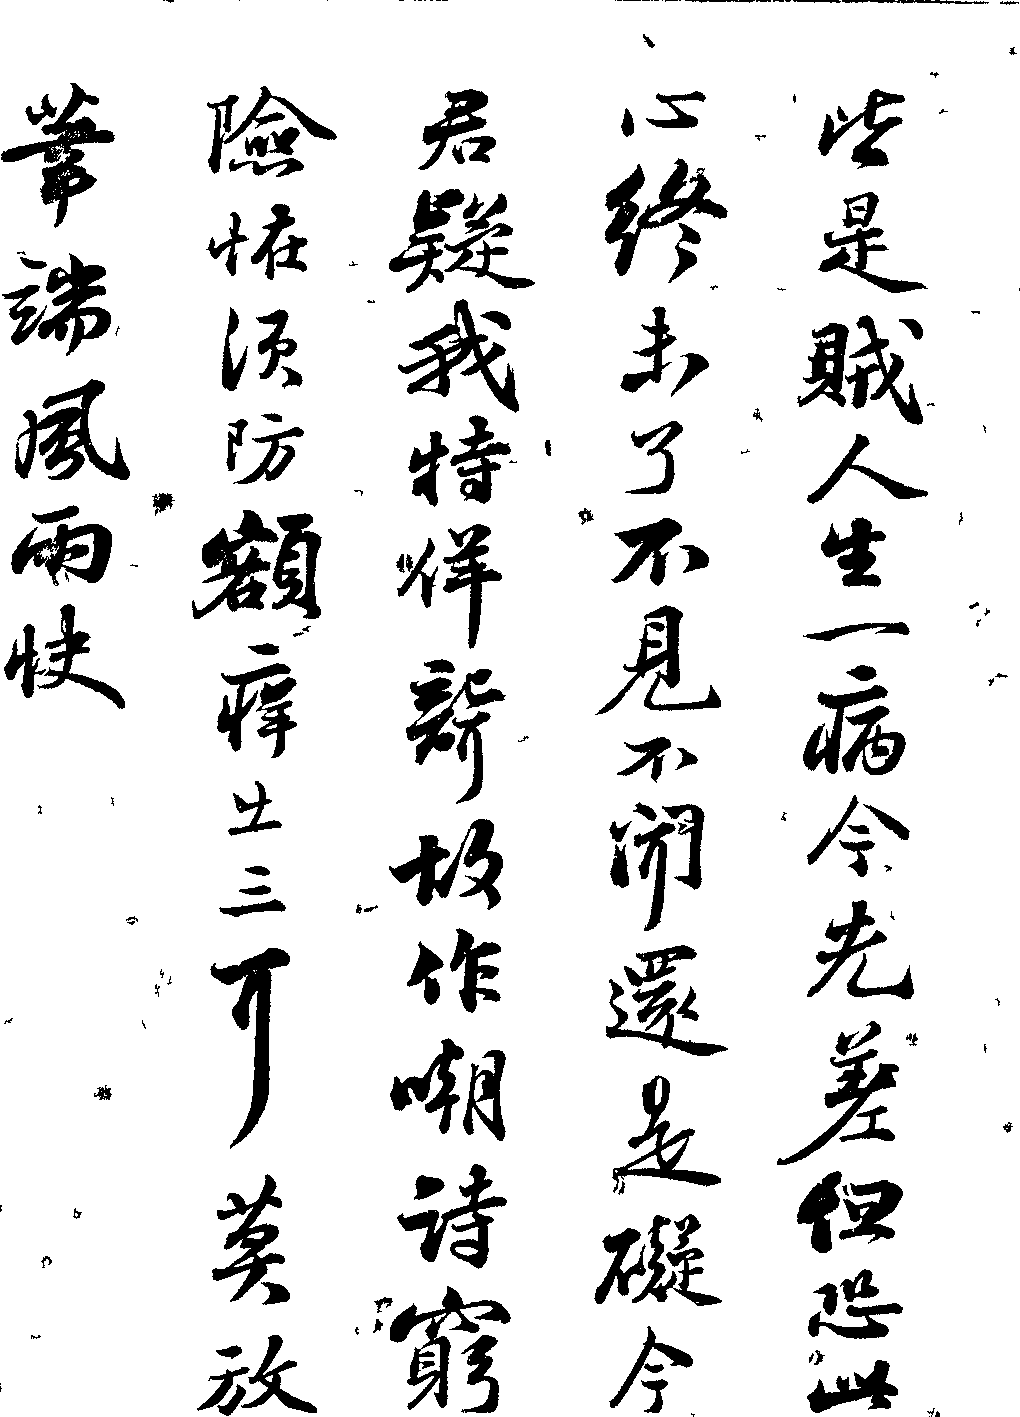 些是賊人生一病今先差但恐此
心終未了不見不聞還是礙今
君疑我特佯聾故作嘲詩窮
險怪須防額癢出三耳莫放
筆端風雨快